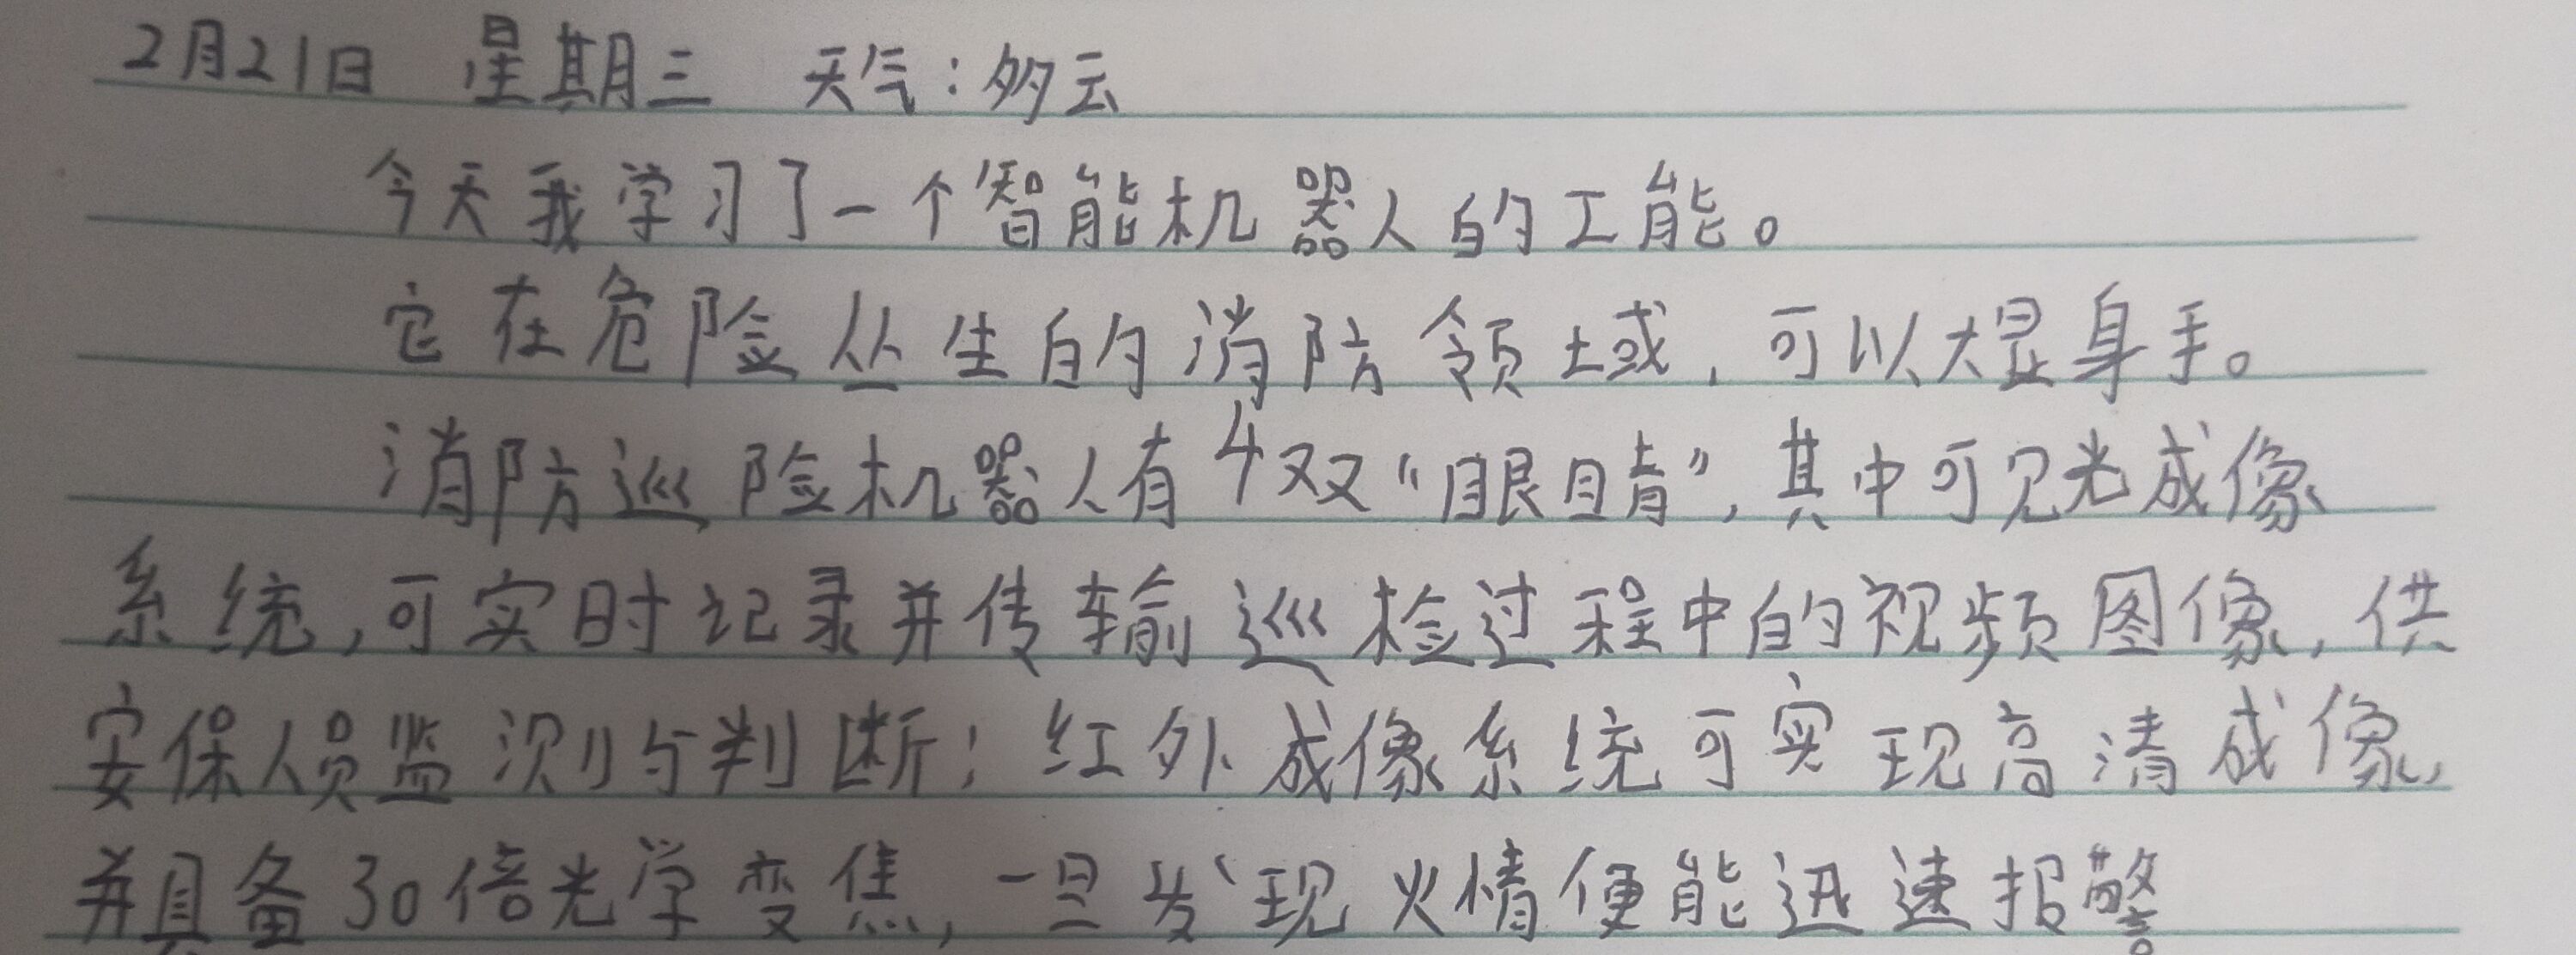 2月21日 星期三 天气：多云
今天我学习了一个智能机器人的工能。
它在危险丛生的消防领域，可以大显身手。
消防巡险机器人有4双“眼睛”，其中可见光成像
系统，可实时记录并传输巡检过程中的视频图像，供
安保人员监测与判断；红外成像系统可实现高清成像，
并具备30倍光学变焦，一旦发现火情便能迅速报警